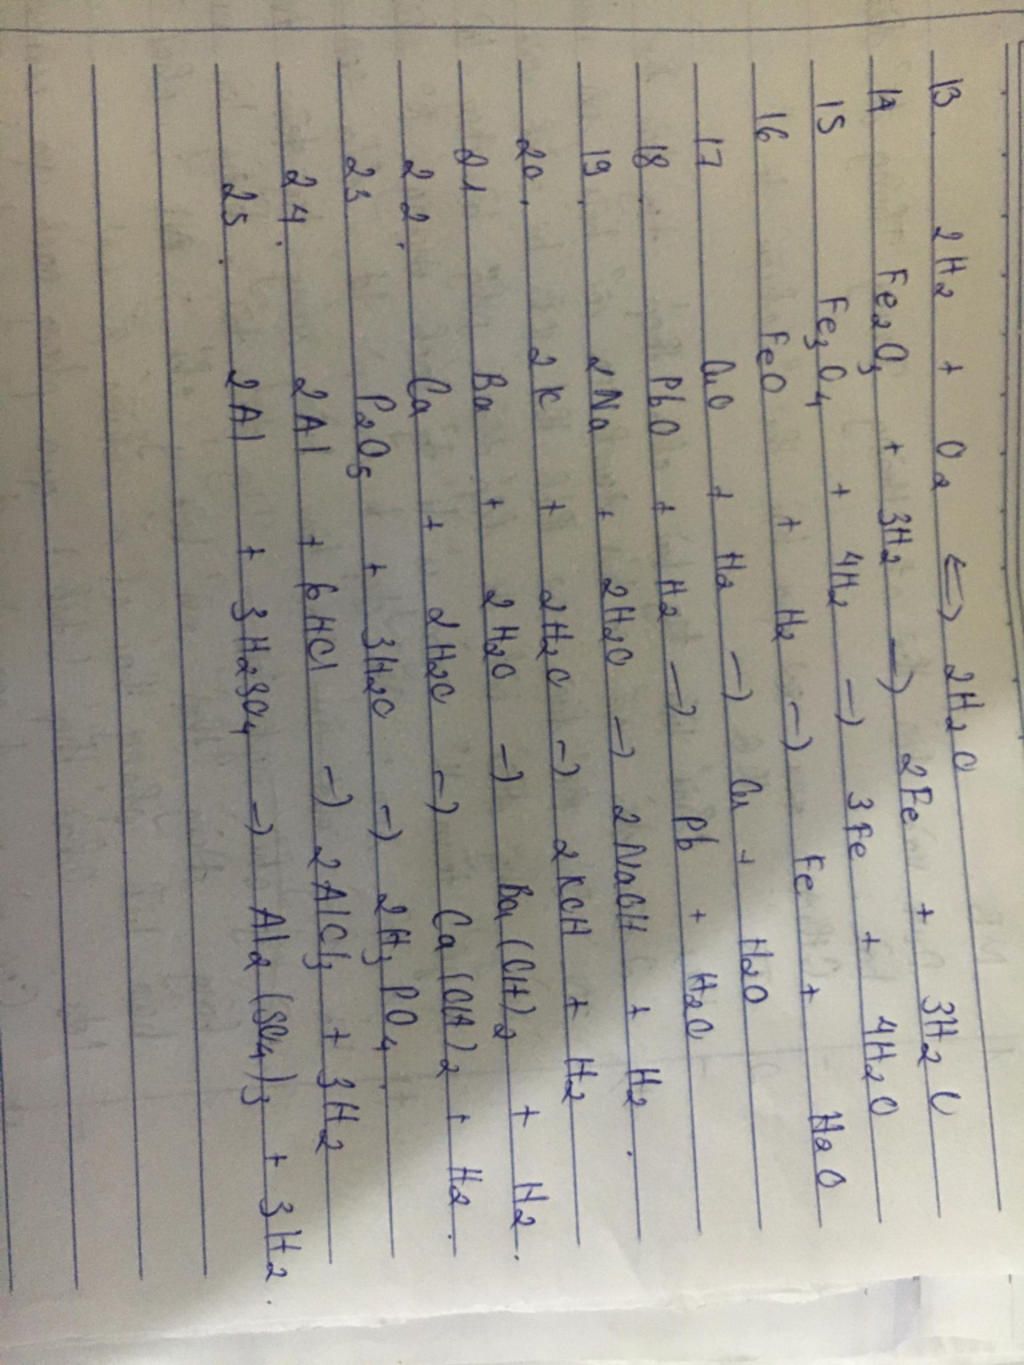 13 2H2 + O2 <=> 2H2O
14 Fe2O3 + 3H2 -> 2Fe + 3H2O
15 Fe3O4 + 4H2 -> 3Fe + 4H2O
16 FeO + H2 -> Fe + H2O
17 CuO + H2 -> Cu + H2O
18 PbO + H2 -> Pb + H2O
19. 2Na + 2H2O -> 2NaOH + H2.
20. 2K + 2H2O -> 2KOH + H2
21 Ba + 2H2O -> Ba(OH)2 + H2.
22. Ca + 2H2O -> Ca(OH)2 + H2.
23 P2O5 + 3H2O -> 2H3PO4.
24. 2Al + 6HCl -> 2AlCl3 + 3H2
25. 2Al + 3H2SO4 -> Al2(SO4)3 + 3H2.